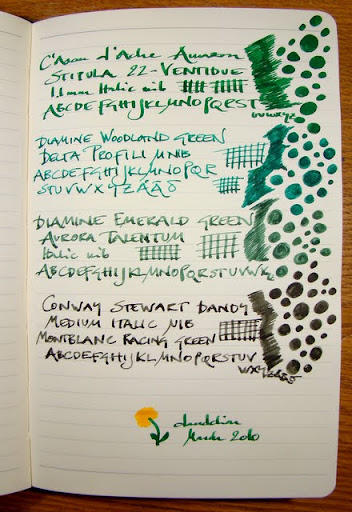 C'Aran d'Ache Amazon
STIPULA 22 - VENTIDUE
1.1mm Italic nib
ABCDEFGHIJKLMNOPQRST
UVWXYZ
DIAMINE WOODLAND GREEN
DELTA PROFILI MNIB
ABCDEFGHIJKLMNOPQR
STUVWXYZÃÄÕ
DIAMINE EMERALD GREEN
AURORA TALENTUM
Italic nib
ABCDEFGHIJKLMNOPQRSTUVWX
CONWAY STEWART DANDY
MEDIUM ITALIC NIB
MONTBLANC RACING GREEN
ABCDEFGHIJKLMNOPQRSTUV
WXYZÃÄÕ
2010